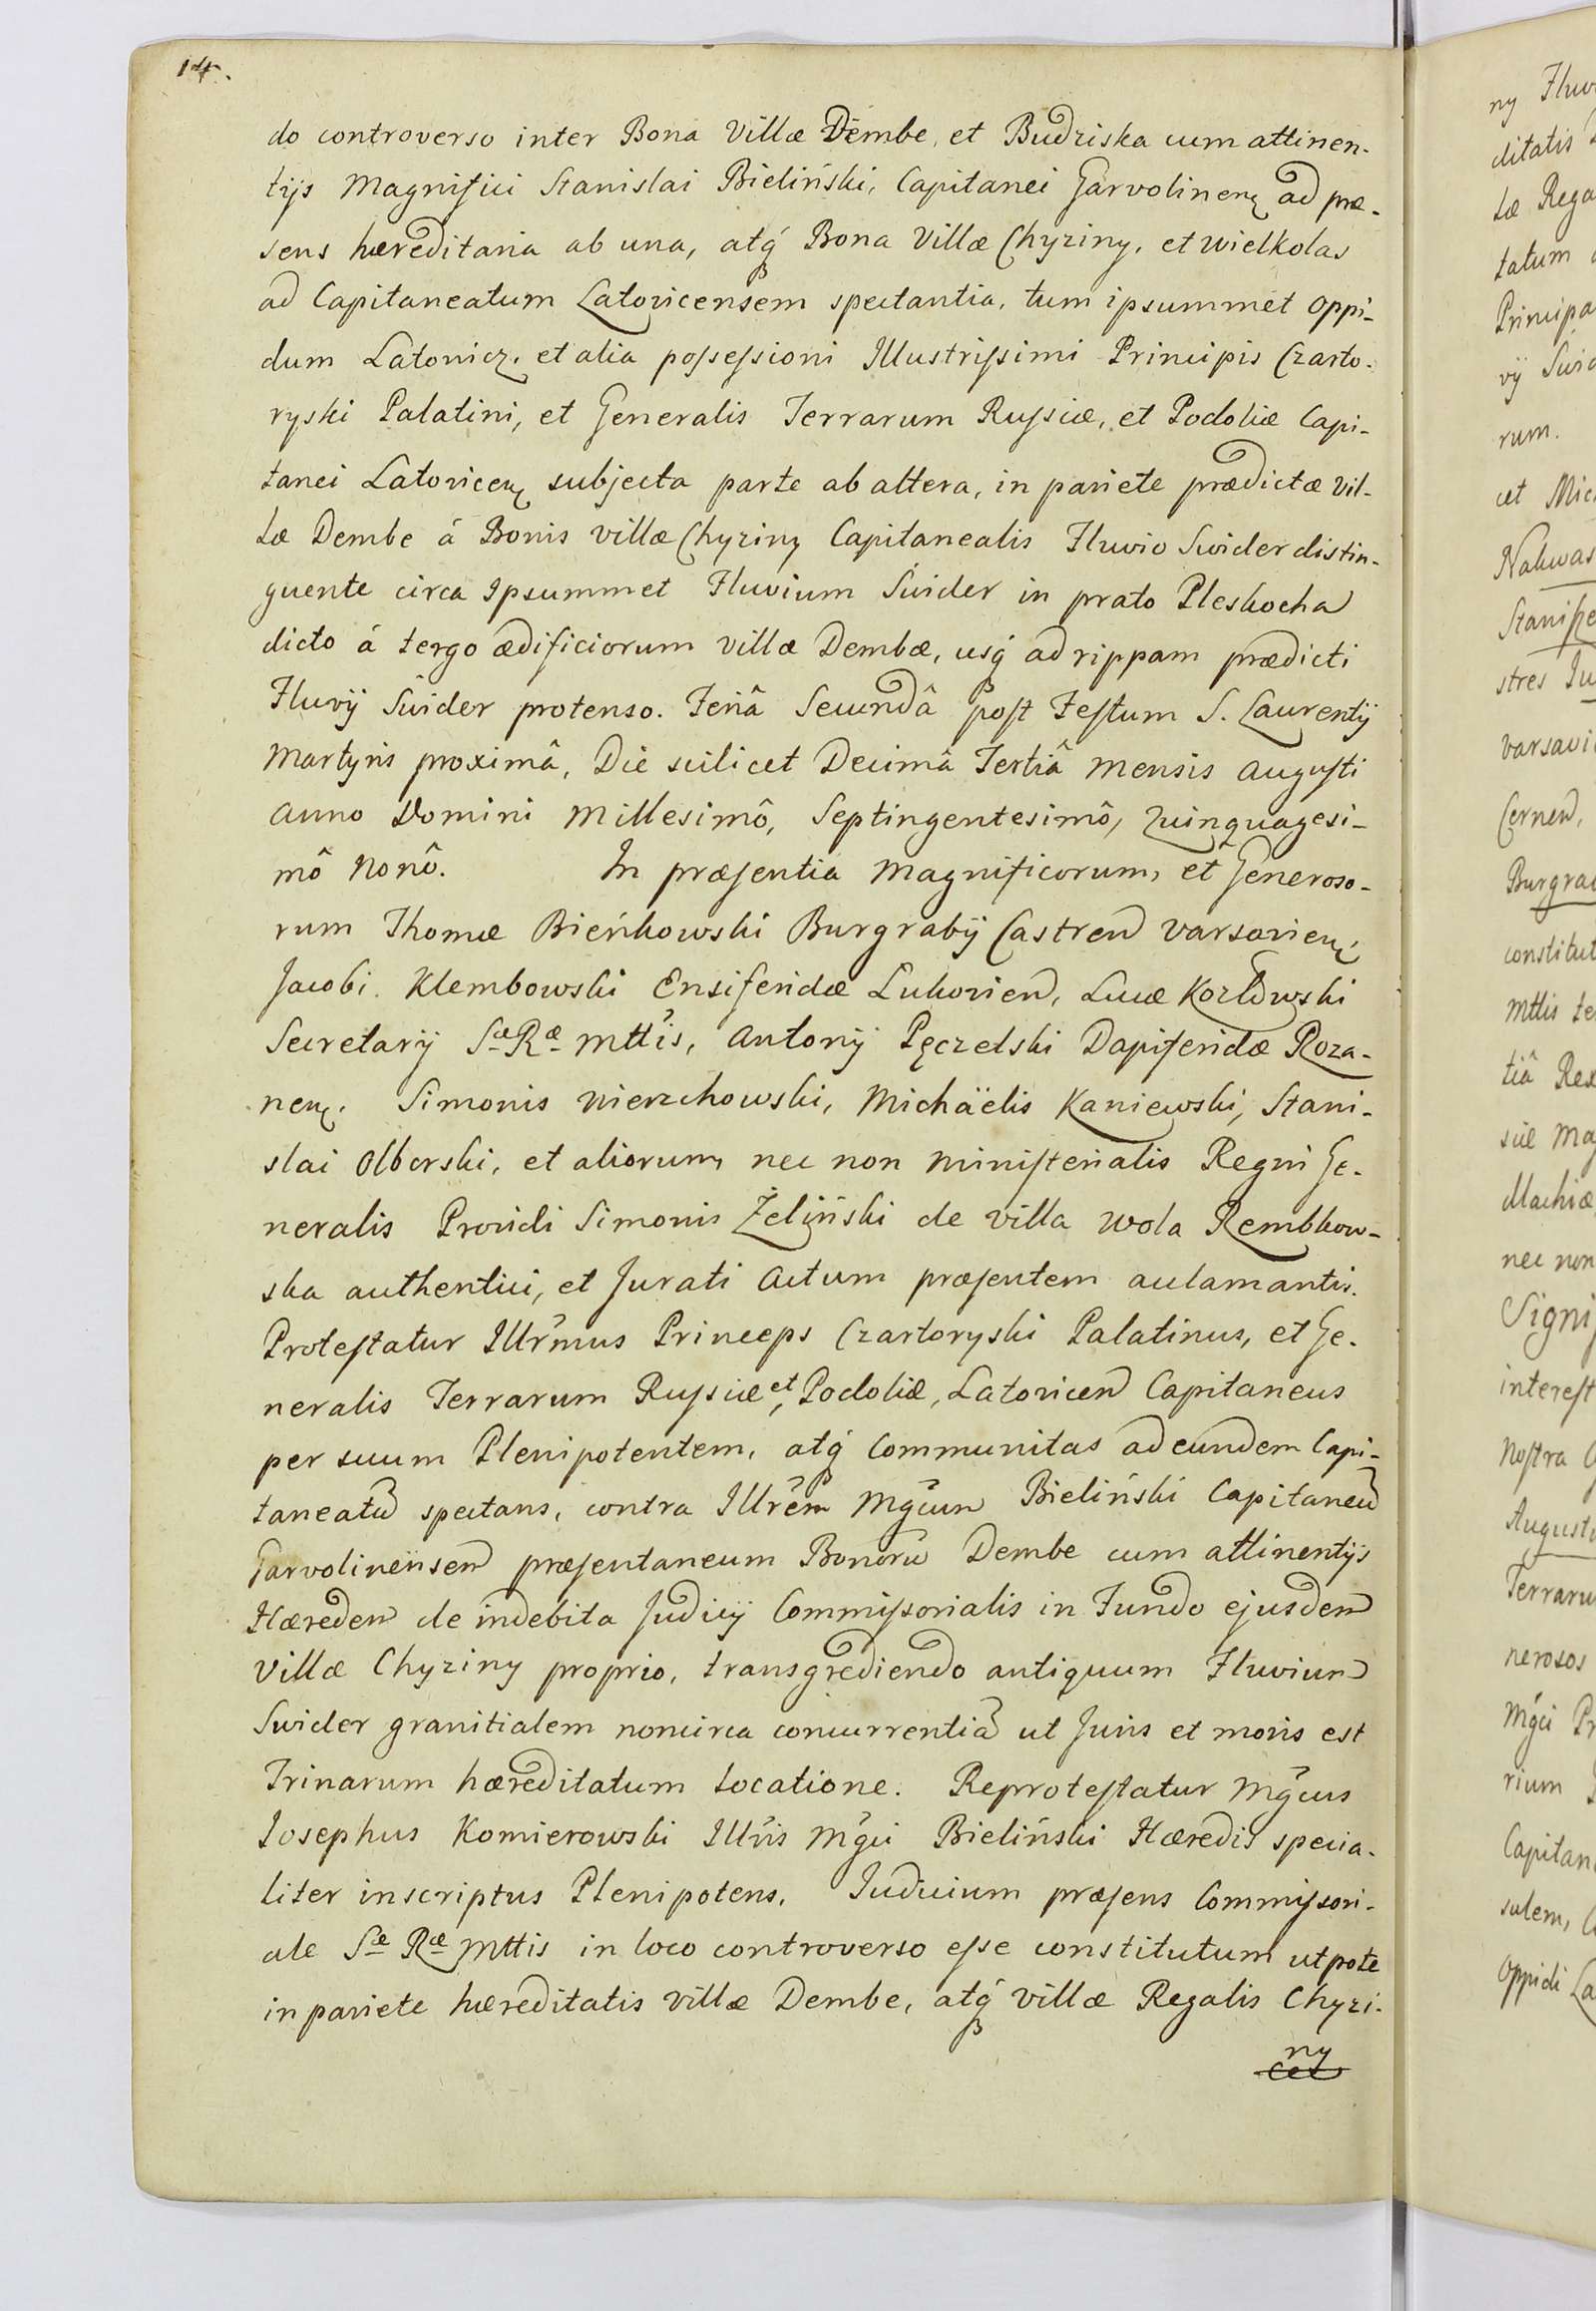 14.
do controverso inter Bona Villæ Dembe, et Budziska cum attinen-
tijs Magnifici Stanislai Bieliński, Capitanei Garvolinen ad præ-
sens hæreditaria ab una, atq́ Bona Villæ Chyziny, et Wielkolas
ad Capitaneatum Latovicensem spectantia, tum ipsummet Oppi-
dum Latowicz, et alia possessioni Illustrissimi Principis Czarto-
ryski Palatini, et Generalis Terrarum Russiæ, et Podoliæ Capi-
tanei Latovicen subjecta parte ab altera, in pariete prædictæ Vil-
læ Dembe á Bonis villæ Chyziny Capitanealis Fluvio Swider distin-
guente circa Ipsummet Fluvium Świder in prato Pleskocha
dicto á tergo ædificiorum villæ Dembæ, usq́ ad rippam prædicti
Fluvij Swider protenso. Feriâ Secundâ post Festum S. Laurentij
Martyris proximâ, Die scilicet Decimâ Tertiâ Mensis Augusti
Anno Domini Millesimô, Septingentesimô, Quinquagesi-
mô Nonô. In præsentia Magnificorum, et Generoso-
rum Thomæ Bieńkowski Burgrabij Castren Varsavien,
Jacobi Klembowski Ensiferidæ Lukovien, Lucæ Kozłowski
Secretarij Sæ Ræ Mttis, Antonij Pęczelski Dapiferidæ Roza-
nen. Simonis Wierzchowski, Michäelis Kaniewski, Stani-
slai Olborski, et aliorum, nec non Ministerialis Regni Ge-
neralis Providi Simonis Żeliński de villa Wola Rembkow-
ska authentici, et Jurati Actum præsentem aclamantis.
Protestatur Illrmus Princeps Czartoryski Palatinus, et Ge-
neralis Terrarum Russiæ et, Podoliæ, Latovicen Capitaneus
per suum Plenipotentem, atq́ Communitas ad eundem Capi-
taneatu spectans, contra Illrem Mgcum Bieliński Capitaneu
Garvolinensem præsentaneum Bonoru Dembe cum attinentijs
Hæredem de indebita Judicij Commissorialis in Fundo ejusdem
Villæ Chyziny proprio, transgrediendo antiquum Fluvium
Swider granitialem noncirca concurrentia ut Juris et moris est
Trinarum hæreditatum locatione. Reprotestatur Mgcus
Josephus Komierowski Illris Mgci Bieliński Hæredis specia-
liter inscriptus Plenipotens, Judicium præsens Commissori-
ale Sæ Ræ Mttis in loco controverso esse constitutum utpote
in pariete hæreditatis villæ Dembe, atq́ villæ Regalis Chyzi-
ny
ny
ditatis
læ Rega
tatum
Principa
rum.
et
Nakwas
stres
Varsavi
Burgra
constitut
Mttis
tiâ
nec non
interest
Nostra
Augusti
Terraru
nerosos
Mgci
rium
Capitan
sulem,
Oppidi